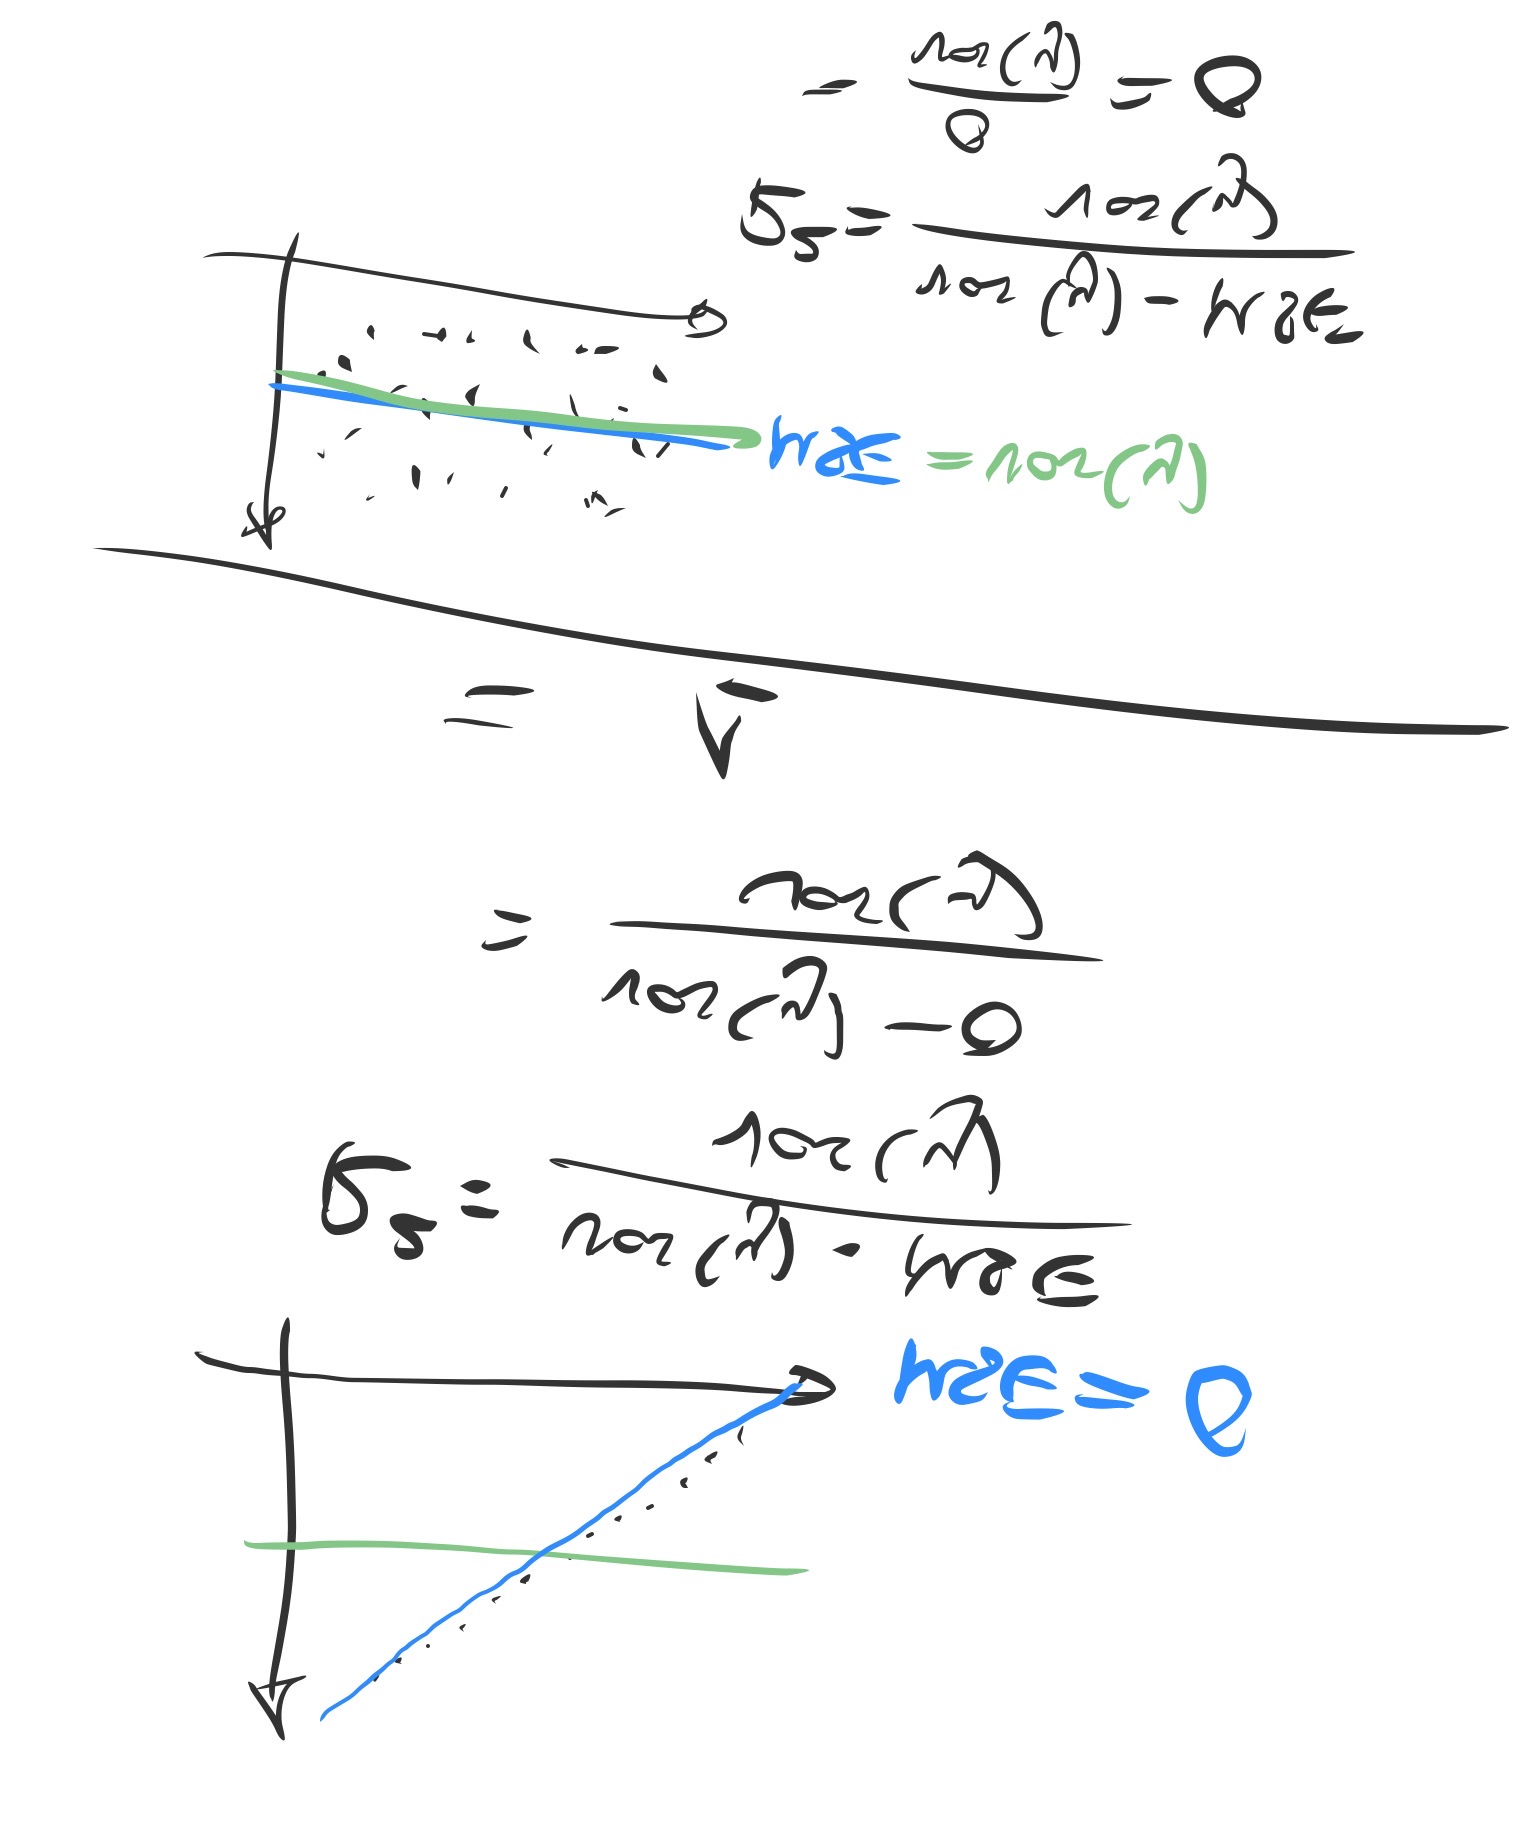 MSE = 0
R² = (var(y) - MSE) / var(y)
= (var(y) - 0) / var(y)
= 1
MSE = var(y)
R² = (var(y) - MSE) / var(y)
= 0 / var(y) = 0